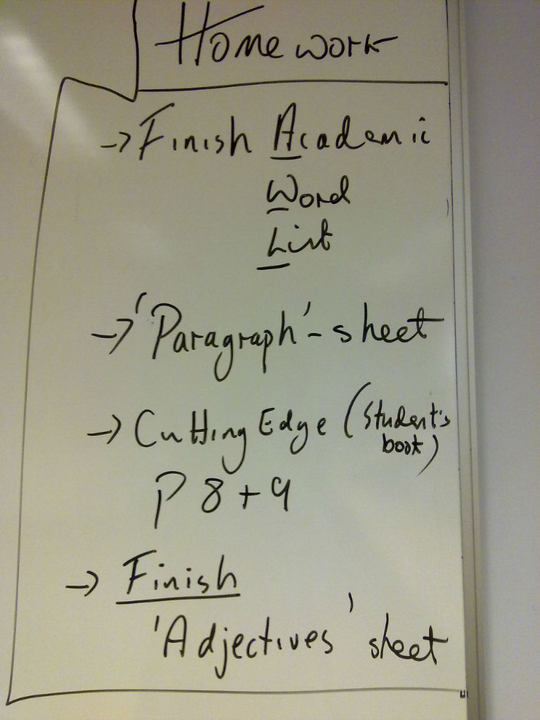 Homework
→ Finish Academic
Word
List
→ 'Paragraph' - sheet
→ Cutting Edge (Student's
book)
P 8 + 9
→ Finish
'Adjectives' sheet